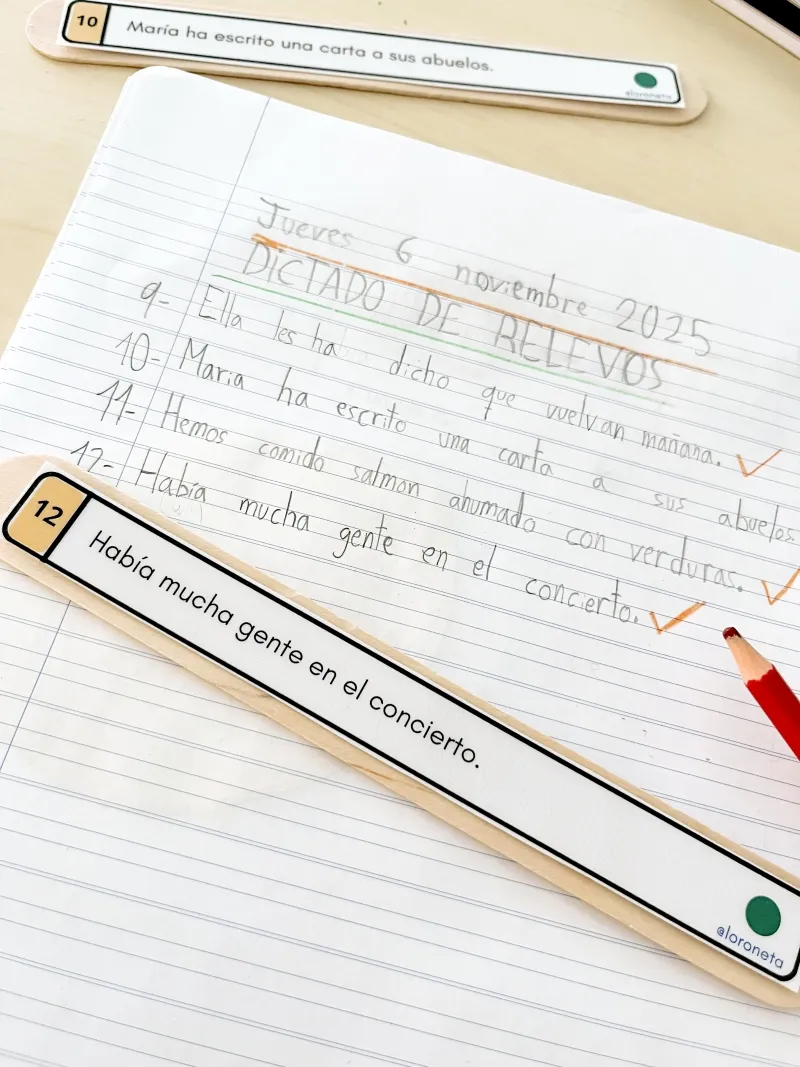 10 María ha escrito una carta a sus abuelos.
@loroneta
Jueves 6 noviembre 2025
DICTADO DE RELEVOS
9- Ella les ha dicho que vuelvan mañana.
10- Maria ha escrito una carta a sus abuelos.
11- Hemos comido salmon ahumado con verduras.
12- Había mucha gente en el concierto.
12 Había mucha gente en el concierto.
@loroneta